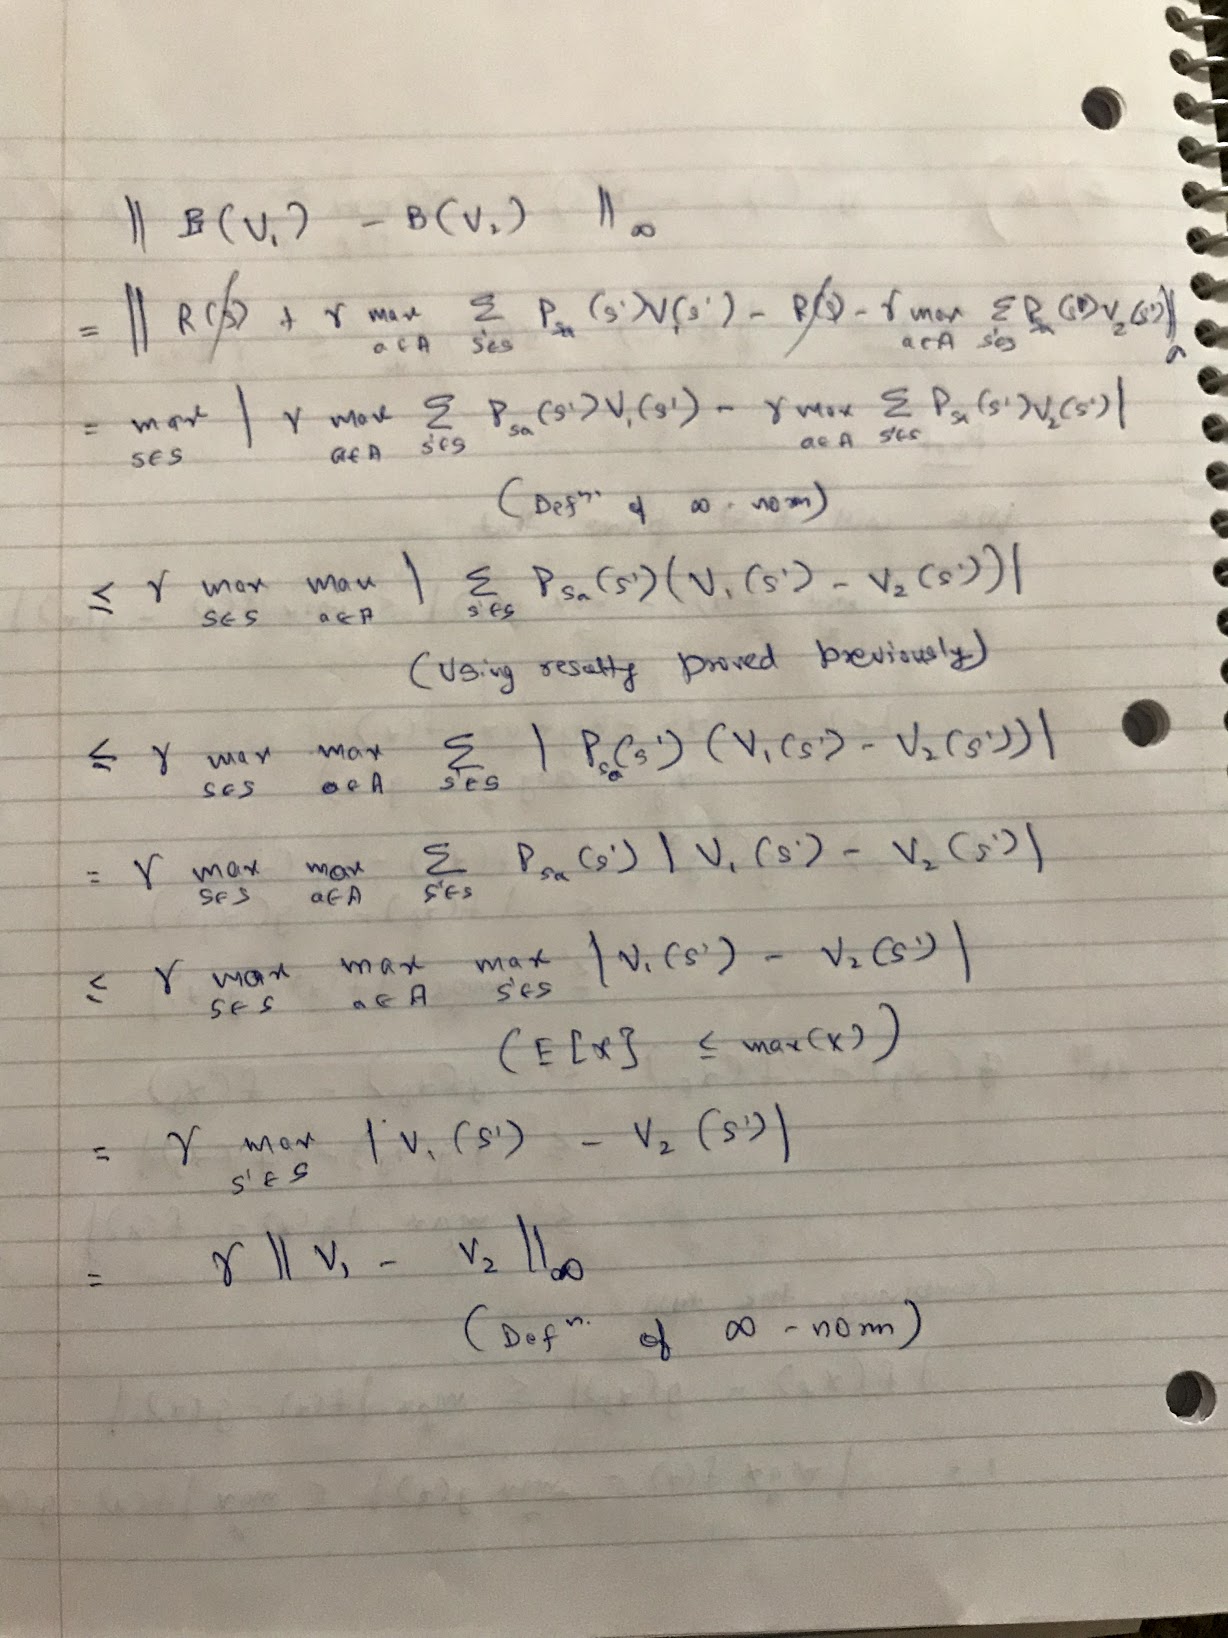 || B(V₁) - B(V₂) ||∞
= || R(s) + γ max a∈A Σ s'∈S Psa(s')V₁(s') - R(s) - γ max a∈A Σ s'∈S Psa(s')V₂(s') ||∞
= max s∈S | γ max a∈A Σ s'∈S Psa(s')V₁(s') - γ max a∈A Σ s'∈S Psa(s')V₂(s') |
(Defⁿ. of ∞-norm)
≤ γ max s∈S max a∈A | Σ s'∈S Psa(s')(V₁(s') - V₂(s')) |
(Using proved previously)
≤ γ max s∈S max a∈A Σ s'∈S | Psa(s') (V₁(s') - V₂(s')) |
= γ max s∈S max a∈A Σ s'∈S Psa(s') | V₁(s') - V₂(s') |
≤ γ max s∈S max a∈A max s'∈S | V₁(s') - V₂(s') |
(E[X] ≤ max(X))
= γ max s'∈S | V₁(s') - V₂(s') |
= γ || V₁ - V₂ ||∞
(Defⁿ. of ∞-norm)